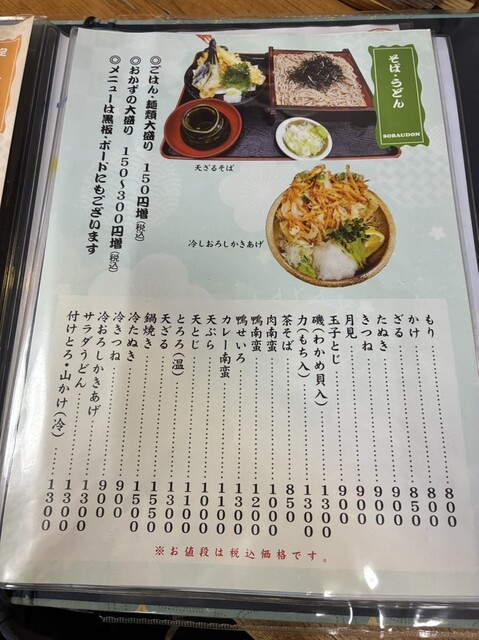 そば・うどん
SOBAUDON
◎ごはん・麺類大盛り 150円増(税込)
◎おかずの大盛り 150〜300円増(税込)
◎メニューは黒板・ボードにもございます
天ざるそば
冷しおろしかきあげ
もり……800
かけ……800
ざる……850
たぬき……900
きつね……900
月見……900
玉子とじ……900
磯(わかめ貝入)……1300
力(もち入)……1000
茶そば……850
肉南蛮……1000
鴨南蛮……1200
鴨せいろ……1300
カレー南蛮……1100
天ぷら……1000
天とじ……1100
とろろ(温)……1000
天ざる……1300
鍋焼き……1550
冷たぬき……900
冷きつね……900
冷おろしかきあげ……1300
サラダうどん……1300
付けとろ・山かけ(冷)……1300
※お値段は税込価格です。